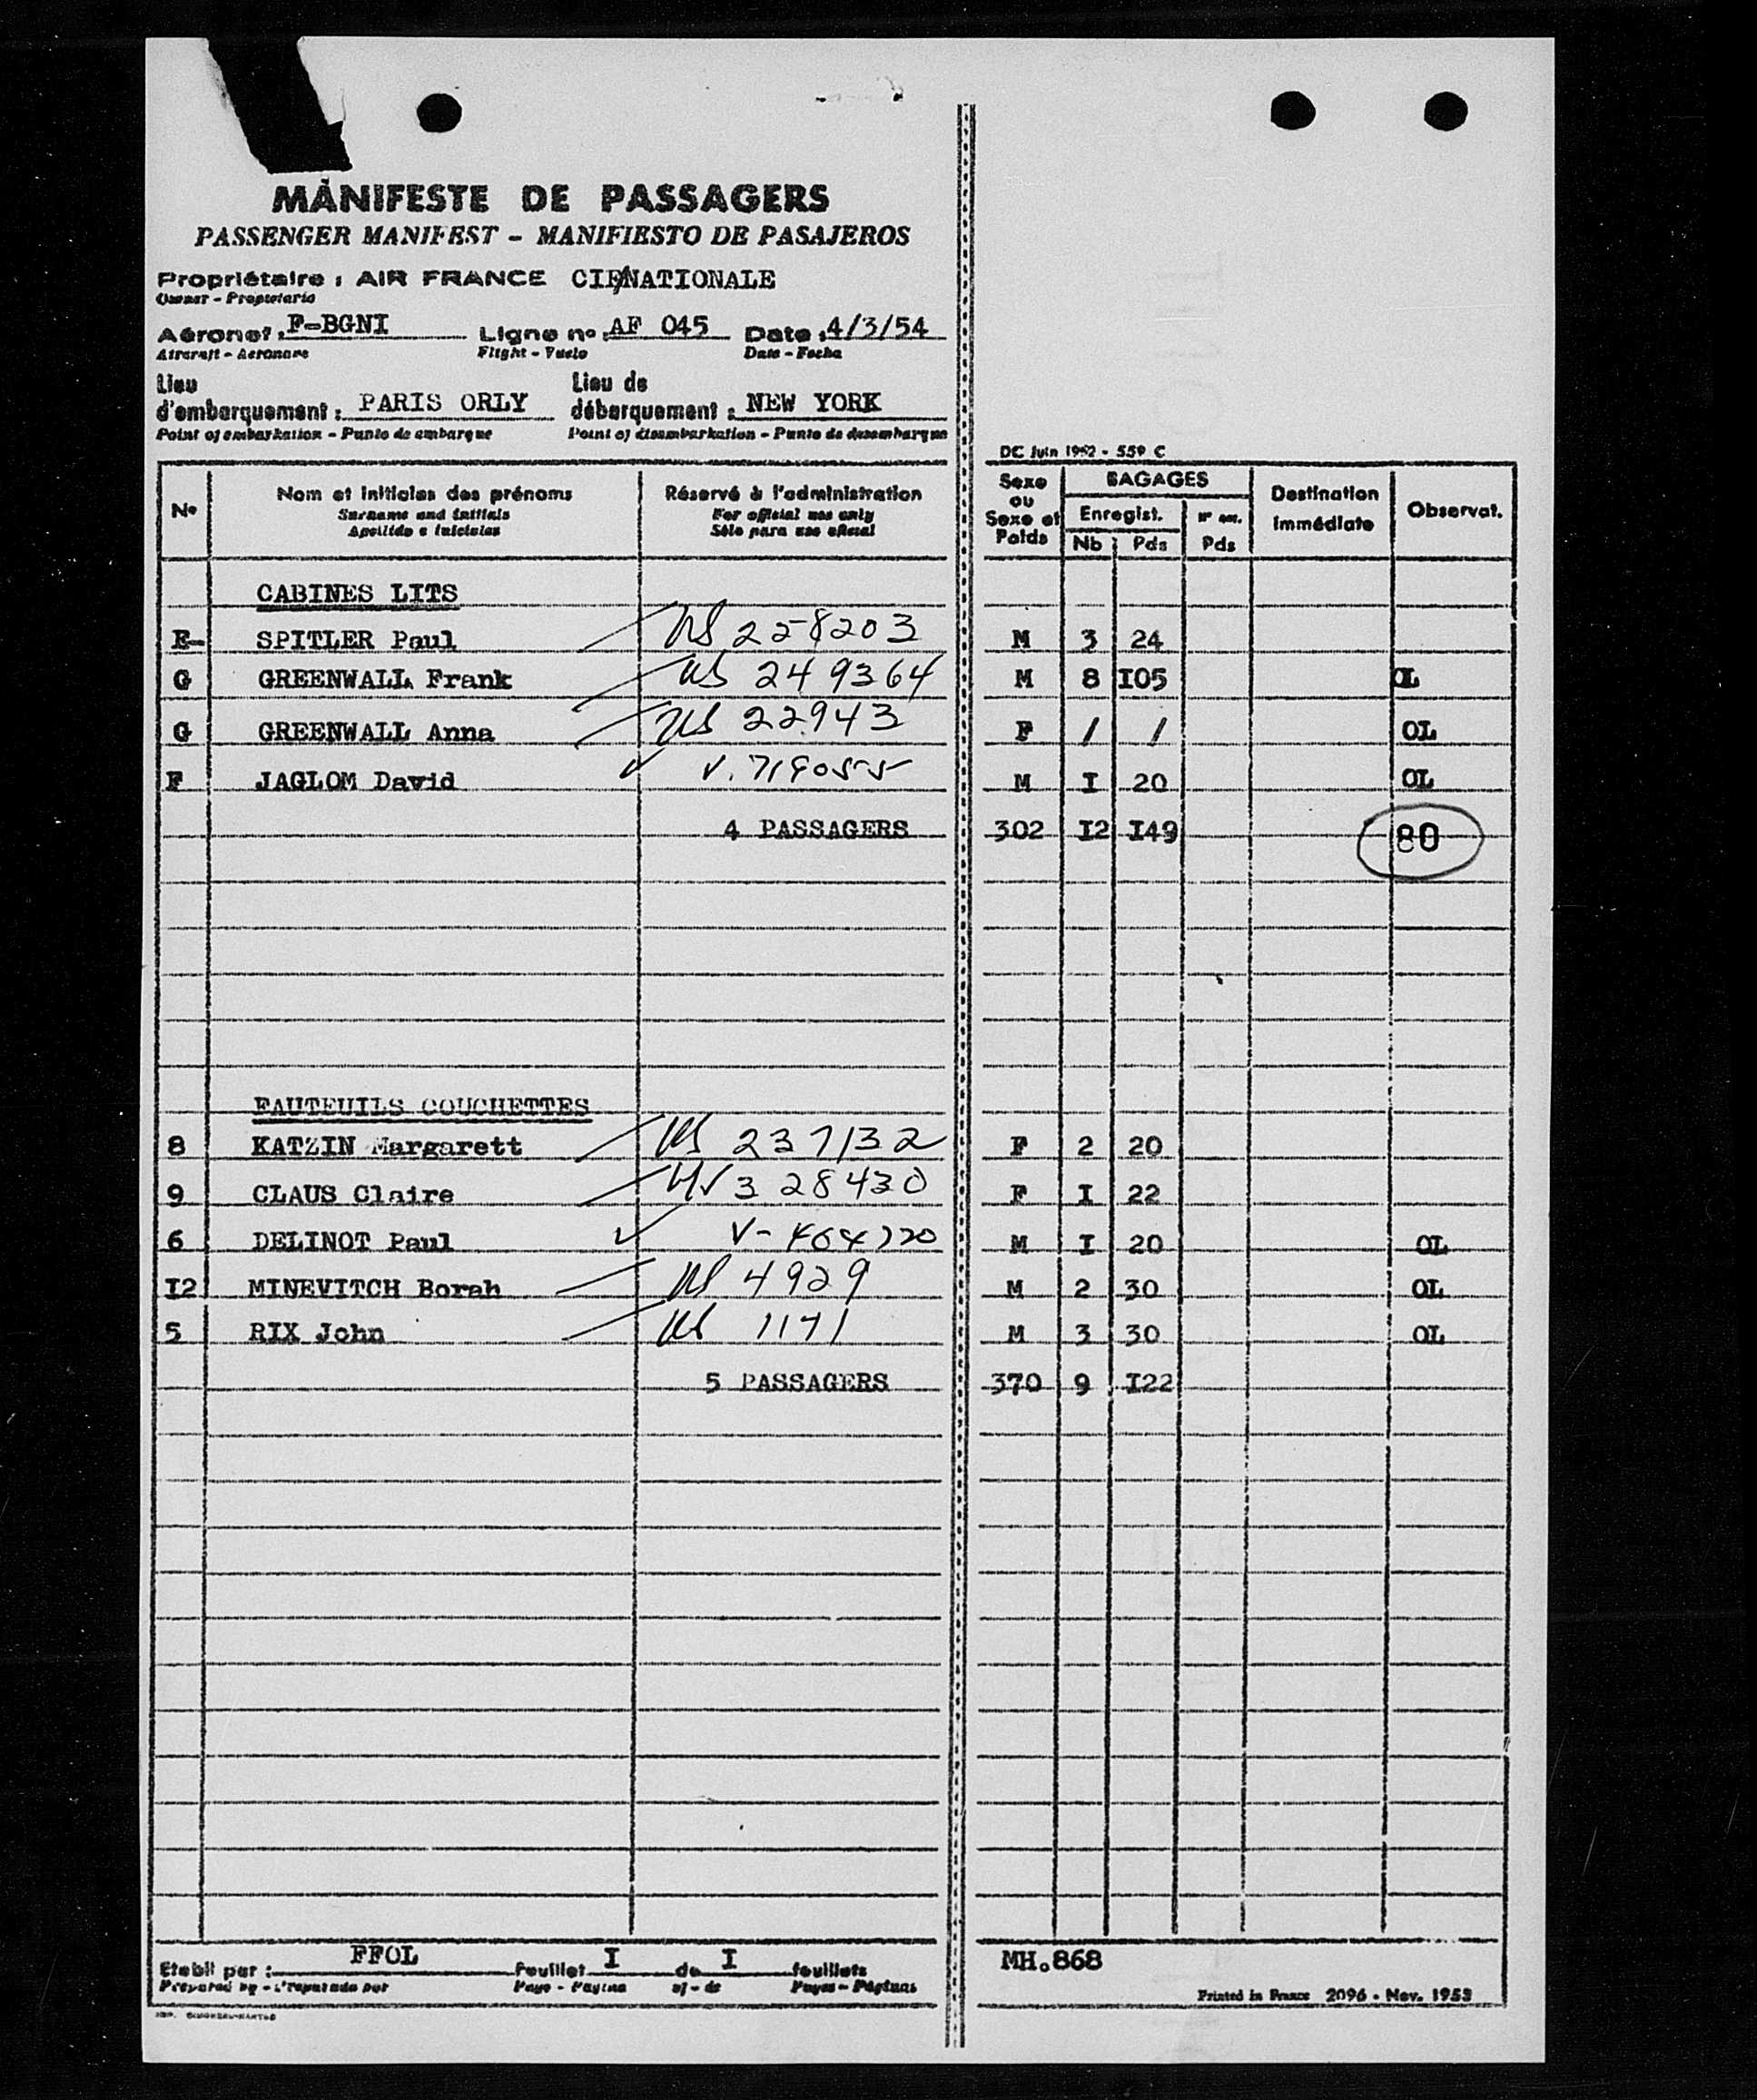 MANIFESTE DE PASSAGERS
PASSENGER MANIFEST - MANIFIESTO DE PASAJEROS
Propriétaire : AIR FRANCE CIE NATIONALE
Owner - Propietario
Aéronef : F-BGNI Ligne n° : AF 045 Date : 4/3/54
Aircraft - Aeronave Flight - Vuelo Date - Fecha
Lieu d'embarquement : PARIS ORLY Lieu de débarquement : NEW YORK
Point of embarkation - Punto de embarque Point of disembarkation - Punto de desembarque
DC Juin 1952 - 559 C
N° Nom et initiales des prénoms Réservé à l'administration Sexe ou Sexe et Poids BAGAGES Destination immédiate Observat.
Surname and initials For official use only Enregist. Pds
Apellido e iniciales Sólo para uso oficial Nb Pds
CABINES LITS
E- SPITLER Paul US 228203 M 3 24
G GREENWALL Frank US 249364 M 8 I05 OL
G GREENWALL Anna US 22943 F / / OL
F JAGLOM David M I 20 OL
4 PASSAGERS 302 I2 I49 80
FAUTEUILS COUCHETTES
8 KATZIN Margarett US 237132 F 2 20
9 CLAUS Claire US 328430 F I 22
6 DELINOT Paul M I 20 OL
I2 MINEVITCH Borah US 4929 M 2 30 OL
5 RIX John US M 3 30 OL
5 PASSAGERS 370 9 I22
Etabli par : FFOL feuillet I de I feuillets
Prepared by - Preparado por Page - Página of - de Pages - Páginas
MH.868
Printed in France 2096 - Nov. 1953